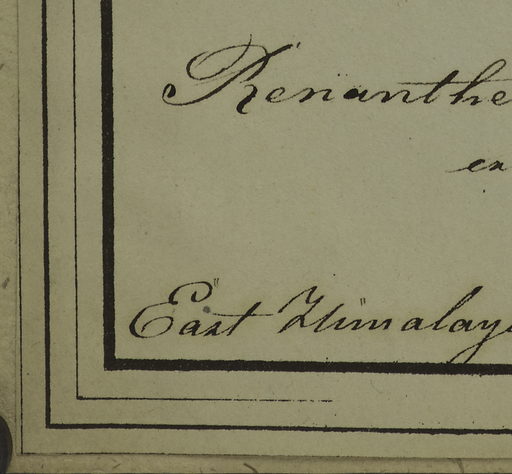 Renanthe
ex
East Himalaya